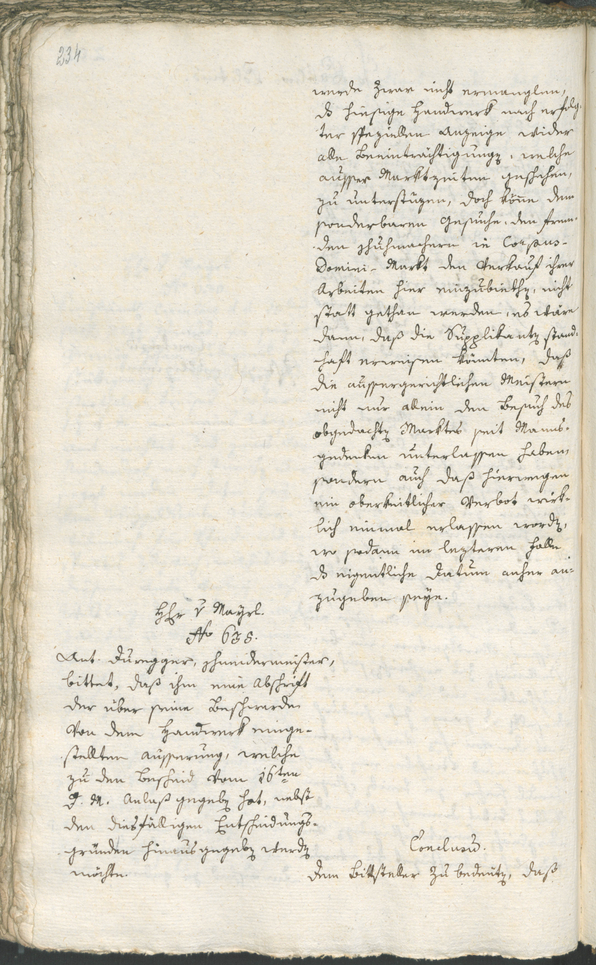 234
werde zwar nicht ermanglen,
das hiesige Handwerk nach erfolg-
ter speziellen Anzeige wider
alle Beeinträchtigungen, welche
ausser Marktzeiten geschehen,
zu unterstüzen, doch könne dem
sonderbaren Gesuche, den frem-
den Schuhmachern in Corpus-
Domini-Markt den Verkauf ihrer
Arbeiten hier einzubiethen, nicht
statt gethan werden, es wäre
dann, daß die Supplikanten stand-
haft erweisen könnten, daß
die aussergerichtlichen Meistern
nicht nur allein den Besuch des
obgedachten Marktes seit Manns-
gedenken unterlassen haben,
sondern auch daß hierwegen
ein oberkeitlicher Verbot wirk-
lich einmal erlassen worden,
wo sodann im lezteren Falle
das eigentliche Datum anher an-
zugeben seye.
Hhr v Mayrl.
No 638.
Ant. Düregger, Schneidermeister,
bittet, daß ihm eine Abschrift
der über seine Beschwerde
von dem Handwerk einge-
stellten Äusserung, welche
zu dem Bescheid vom 16ten
d. M. Anlaß gegeben hat, nebst
den diesfälligen Entscheidungs-
gründen hinausgegeben werden
möchte.
Conclusum.
Dem Bittsteller zu bedeuten, daß